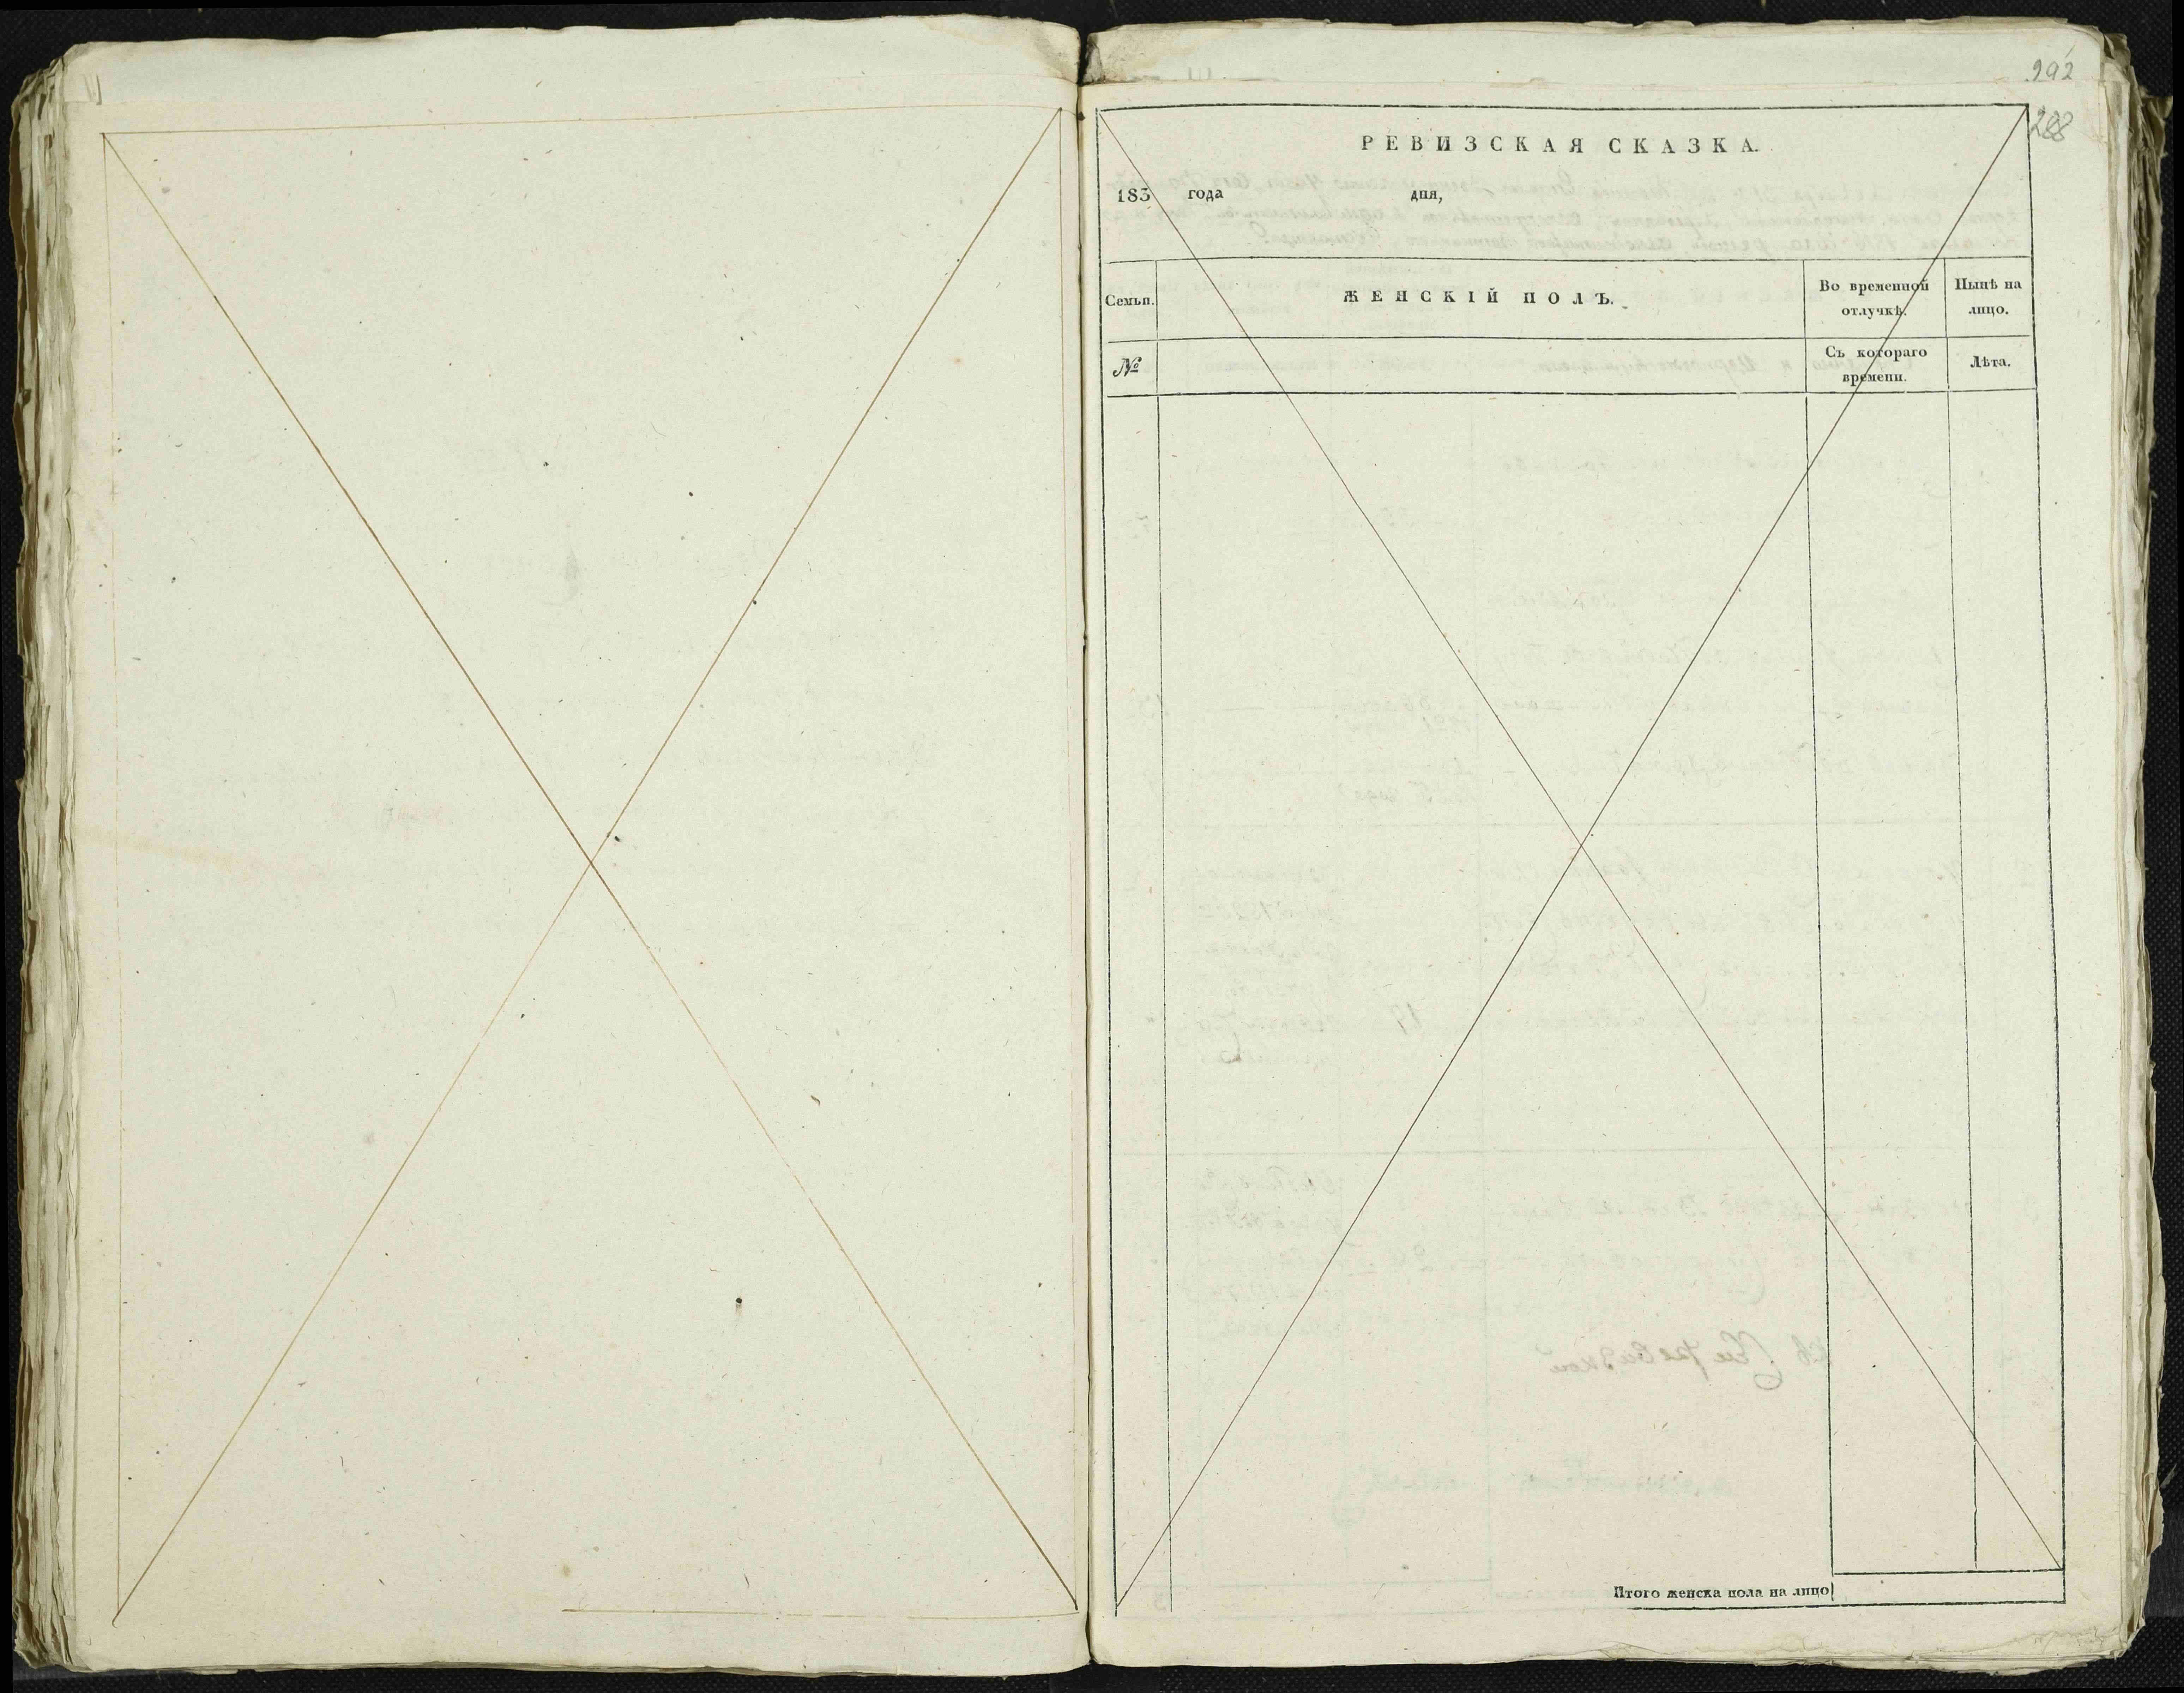 292
288
РЕВИЗСКАЯ СКАЗКА.
183 года дня,
Семьи. ЖЕНСКІЙ ПОЛЪ. Во временной отлучкѣ. Нынѣ на лицо.
№ Съ котораго времени. Лѣта.
Итого женска пола на лицо